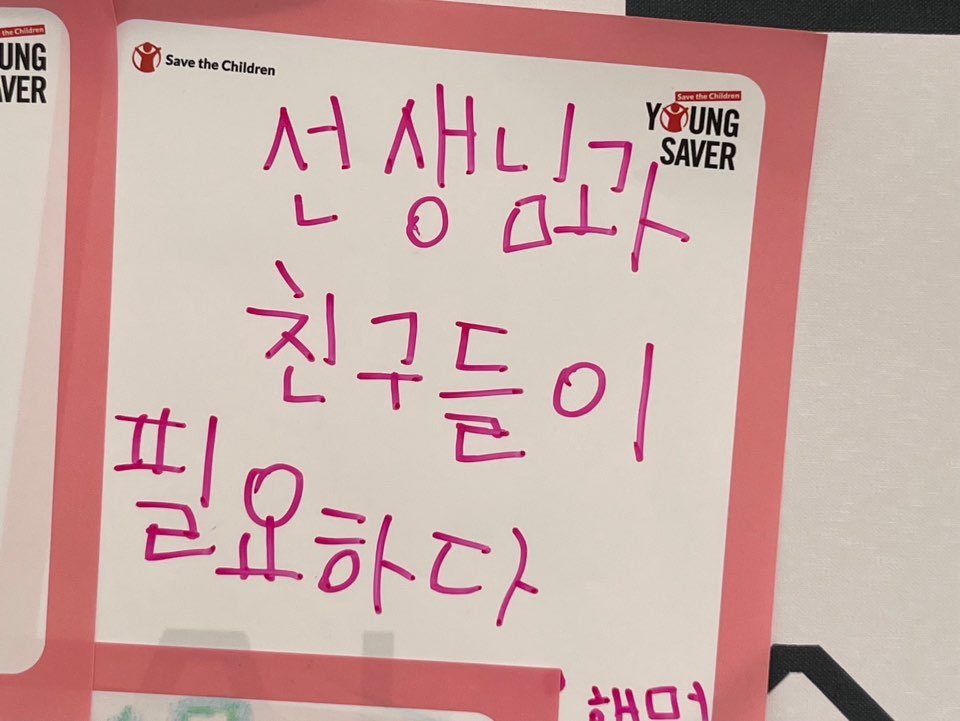 Save the Children
UNG
AVER
Save the Children
Save the Children
YOUNG
SAVER
선생님과
친구들이
필요하다